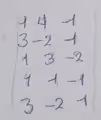 1 4 -1
3 -2 1
1 3 -2
1 1 -1
3 -2 1